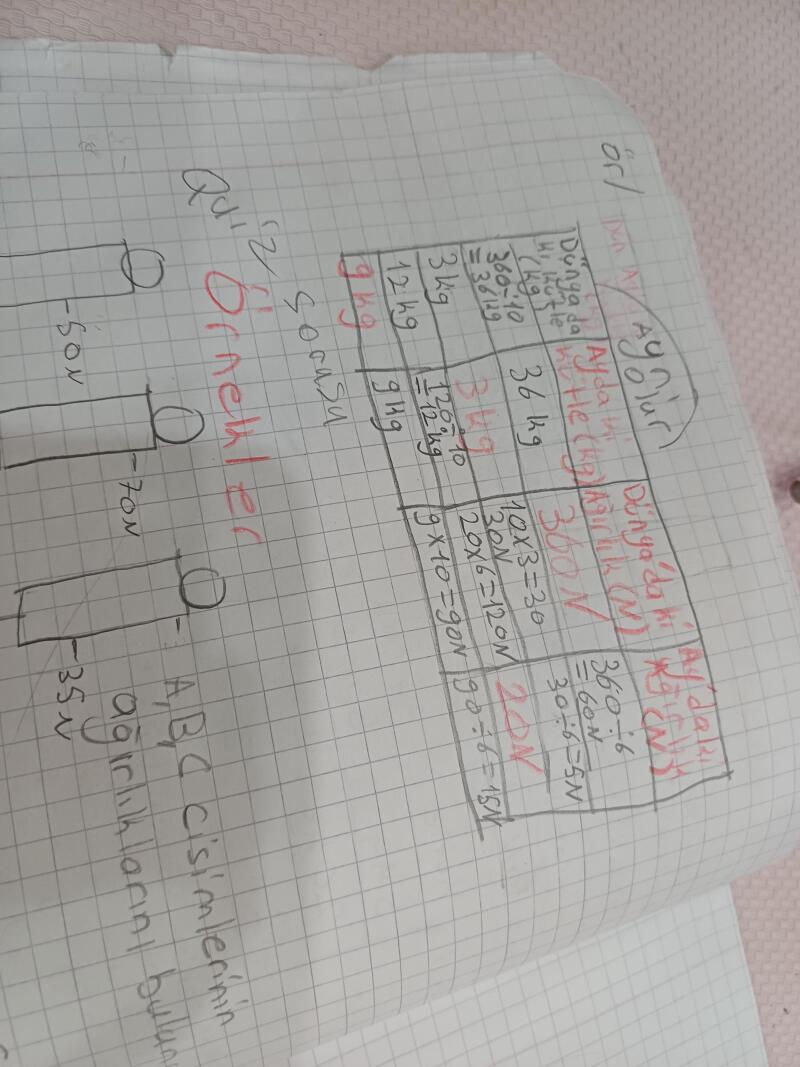 ör/
Aynı
Olur
Dünyada
ki kütle
(kg)
Aydaki
kütle (kg)
Dünya'daki
Ağırlık (N)
Ay'daki
Ağırlık
(N)
360÷10
=36kg
36 kg
360N
360÷6
=60N
3kg
3kg
10x3=30
30N
30÷6=5N
12kg
120÷10
=12kg
20x6=120N
20N
9kg
9kg
9x10=90N
90÷6=15N
Quiz sorusu
Örnekler
-50N
-70N
-35N
A,B,C cisimlerinin
ağırlıklarını